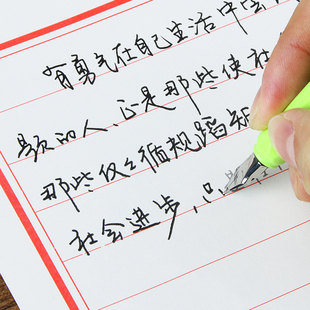 有勇气在自己生活中尝
题的人，正是那些使社
那些仅仅循规蹈矩
社会进步，只